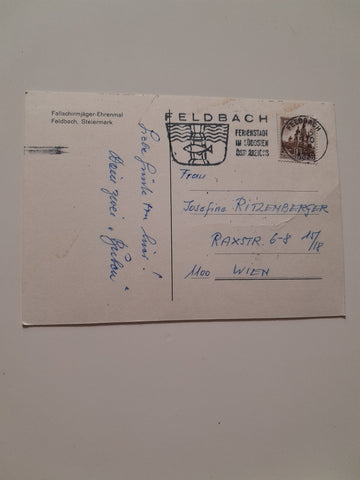 Fallschirmjäger-Ehrenmal
Feldbach, Steiermark
FELDBACH
FERIENSTADT
IM SÜDOSTEN
ÖSTERREICHS
FELDBACH
Liebe Grüße von hier!
Deine zwei
Frau
Josefine RITZENBERGER
RAXSTR. 6-8 15/18
1100 WIEN